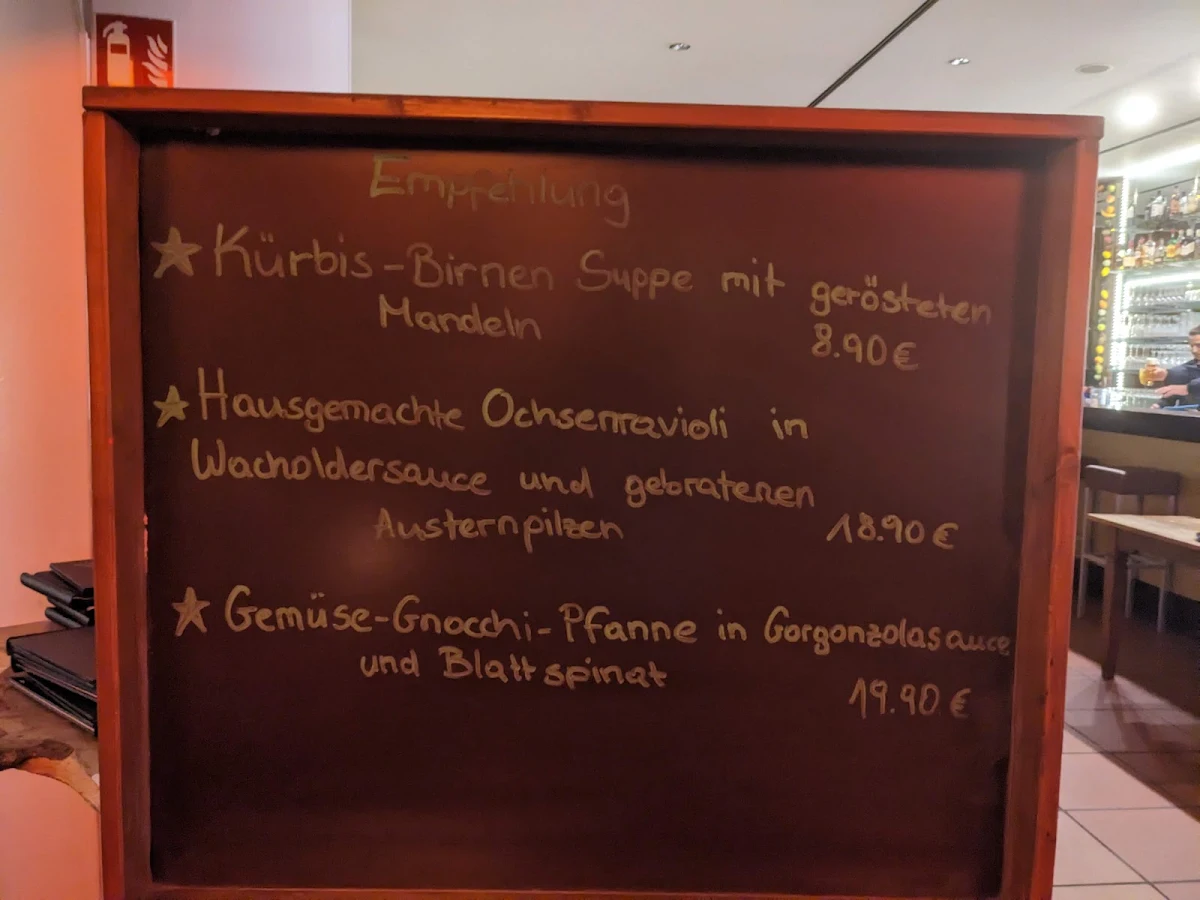 Empfehlung
Kürbis-Birnen Suppe mit gerösteten
Mandeln 8.90€
Hausgemachte Ochsenravioli in
Wacholdersauce und gebratenen
Austernpilzen 18.90€
Gemüse-Gnocchi-Pfanne in Gorgonzolasauce
und Blattspinat 19.90 €